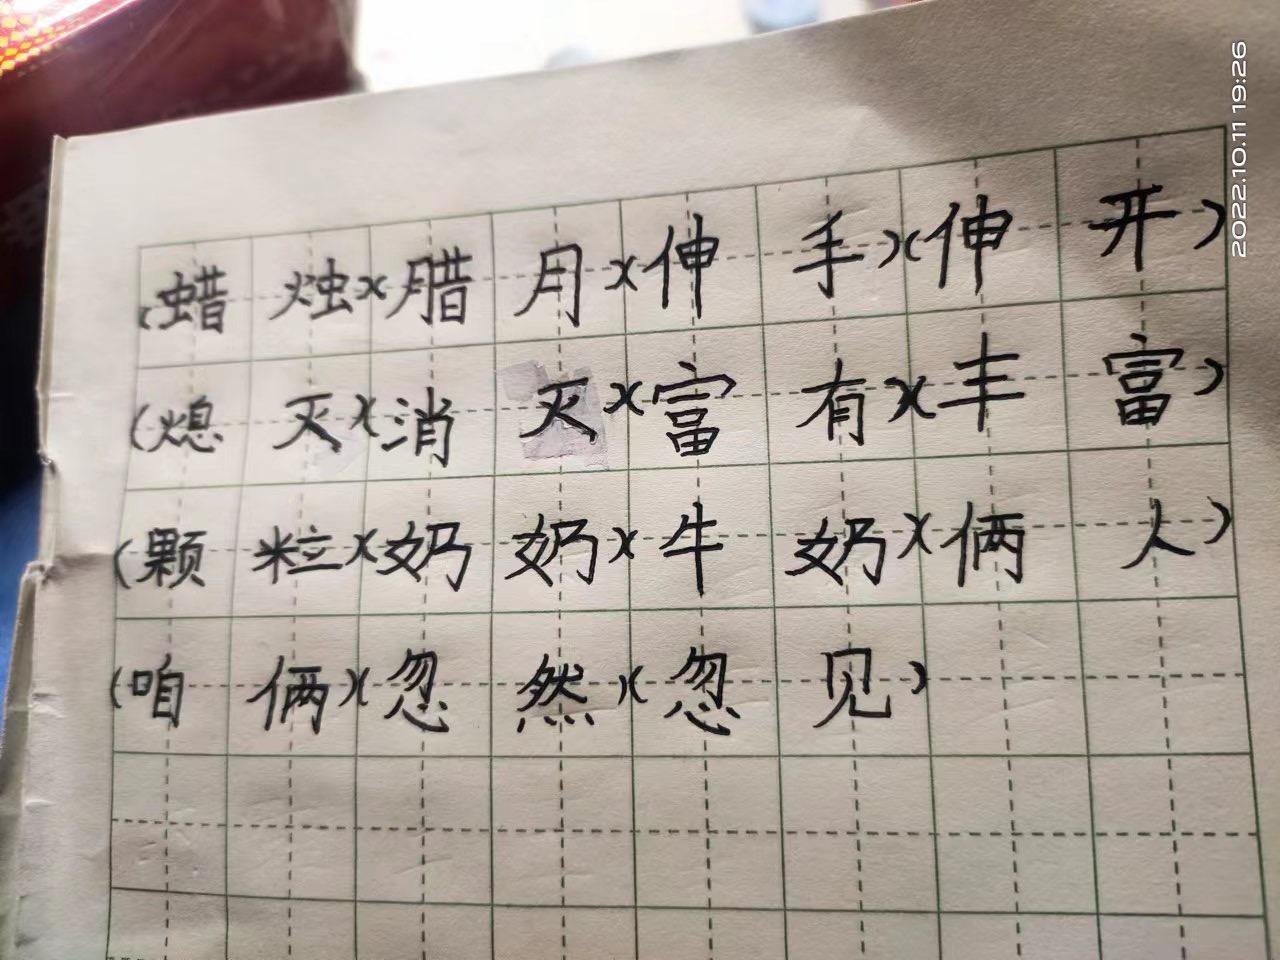 (蜡烛)(腊月)(伸手)(伸开)
(熄灭)(消灭)(富有)(丰富)
(颗粒)(奶奶)(牛奶)(俩人)
(咱俩)(忽然)(忽见)
2022.10.11 19:26